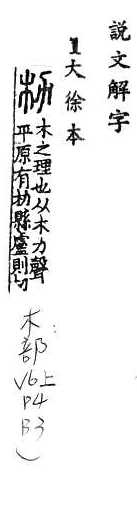 說文解字
1大徐本
朸 木之理也从木力聲
平原有朸縣盧則切
木部
V6上
P4
B3